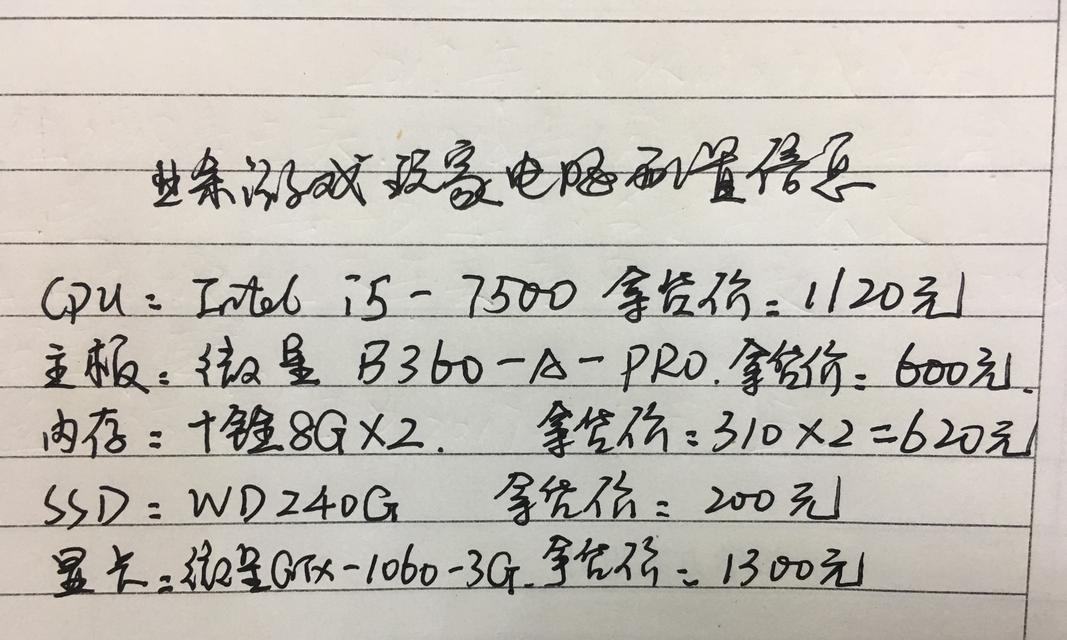 某游戏玩家电脑配置信息
CPU：Intel i5-7500 拿货价：1120元
主板：微星 B360-A-PRO. 拿货价：600元.
内存：十铨8G×2. 拿货价：310×2=620元
SSD：WD240G 拿货价：200元
显卡：微星GTX-1060-3G. 拿货价：1300元